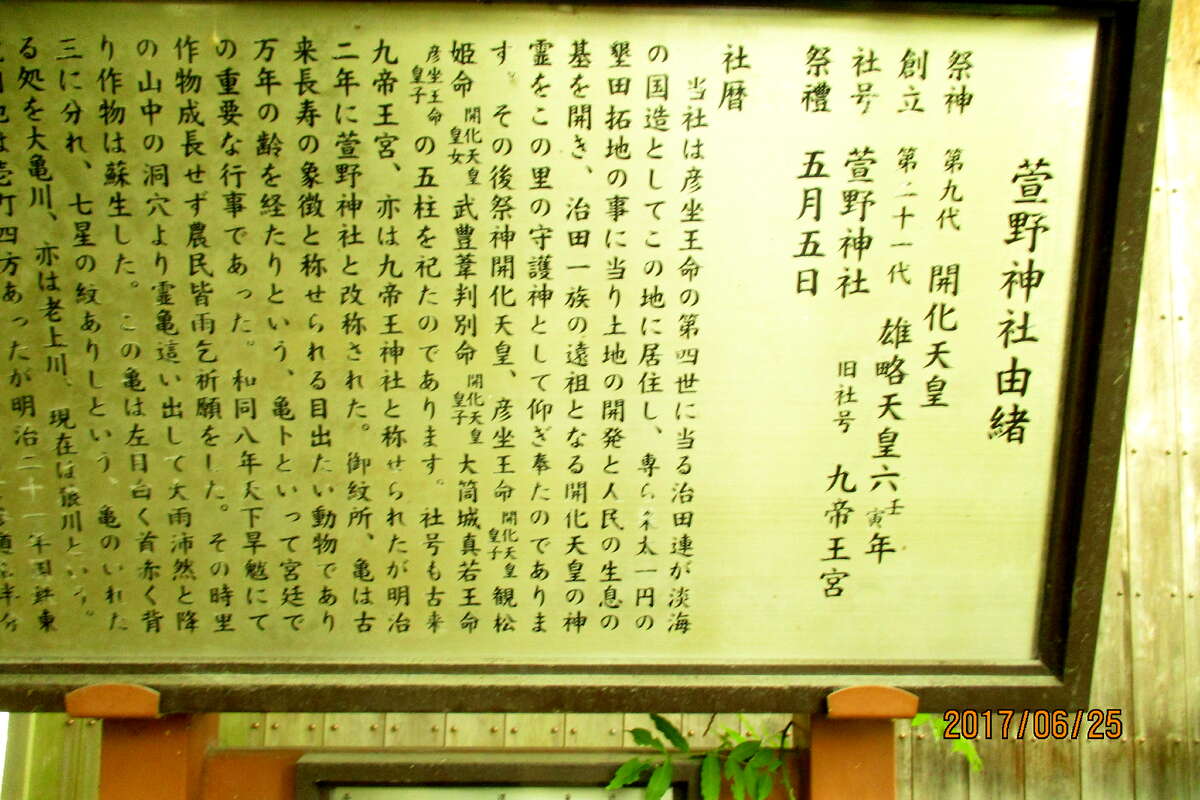 萱野神社由緒
祭神 第九代 開化天皇
創立 第二十一代 雄略天皇六壬寅年
社号 萱野神社 旧社号 九帝王宮
祭禮 五月五日
社暦
当社は彦坐王命の第四世に当る治田連が淡海
の国造としてこの地に居住し、専ら 太一円の
墾田拓地の事に当り土地の開発と人民の生息の
基を開き、治田一族の遠祖となる開化天皇の神
霊をこの里の守護神として仰ぎ奉たのでありま
す。その後祭神開化天皇、彦坐王命開化天皇皇子観松
姫命開化天皇皇女武豊葦判別命開化天皇皇子大筒城真若王命
彦坐王命皇子の五柱を祀たのであります。社号も古来
九帝王宮、亦は九帝王神社と称せられたが明治
二年に萱野神社と改称された。御紋所、亀は古
来長寿の象徴と称せられる目出たい動物であり
万年の齢を経たりという、亀卜といって宮廷で
の重要な行事であった。和同八年天下旱魃にて
作物成長せず農民皆雨乞祈願をした。その時里
の山中の洞穴より霊亀這い出して大雨沛然と降
り作物は蘇生した。この亀は左目白く首赤く背
三に分れ、七星の紋ありしという、亀のいれた
る処を大亀川、亦は老上川、現在は狼川という。
町四方あったが明治二十